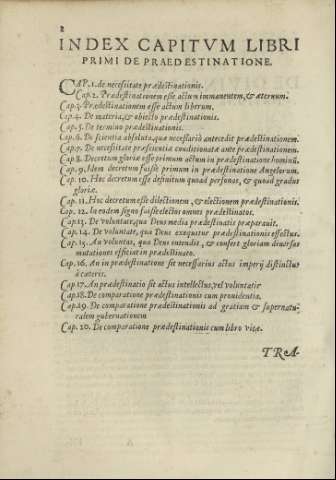 2
INDEX CAPITVM LIBRI
PRIMI DE PRAEDESTINATIONE.
CAP. 1. de necessitate prædestinationis.
Cap. 2. Prædestinationem esse actum immanentem, & æternum.
Cap. 3. Prædestinationem esse actum liberum.
Cap. 4. De materia, & obiecto prædestinationis.
Cap. 5. De termino prædestinationis.
Cap. 6. De scientia absoluta, quæ necessariò antecedit prædestinationem.
Cap. 7. De necessitate præscientiæ conditionatæ ante prædestinationem.
Cap. 8. Decretum gloriæ esse primum actum in prædestinatione hominũ.
Cap. 9. Idem decretum fuisse primum in prædestinatione Angelorum.
Cap. 10. Hoc decretum esse definitum quoad personas, & quoad gradus
gloriæ.
Cap. 11. Hoc decretum esse dilectionem, & electionem prædestinationis.
Cap. 12. In eodem signo fuisse electos omnes prædestinatos.
Cap. 13. De voluntate, qua Deus media prædestinatis præparauit.
Cap. 14. De voluntate, qua Deus exequitur prædestinationis effectus.
Cap. 15. An voluntas, qua Deus intendit, & confert gloriam diuersas
mutationes efficiat in prædestinato.
Cap. 16. An in prædestinatione sit necessarius actus imperij distinctus
à cæteris.
Cap 17. An prædestinatio sit actus intellectus, vel voluntatis
Cap. 18. De comparatione prædestinationis cum prouidentia.
Cap. 19. De comparatione prædestinationis ad gratiam & supernatu-
ralem gubernationem
Cap. 20. De comparatione prædestinationis cum libro vitæ.
TRA-